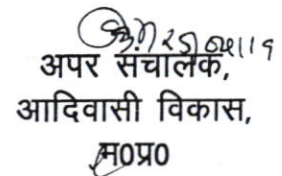 अपर संचालक,
आदिवासी विकास,
म0प्र0